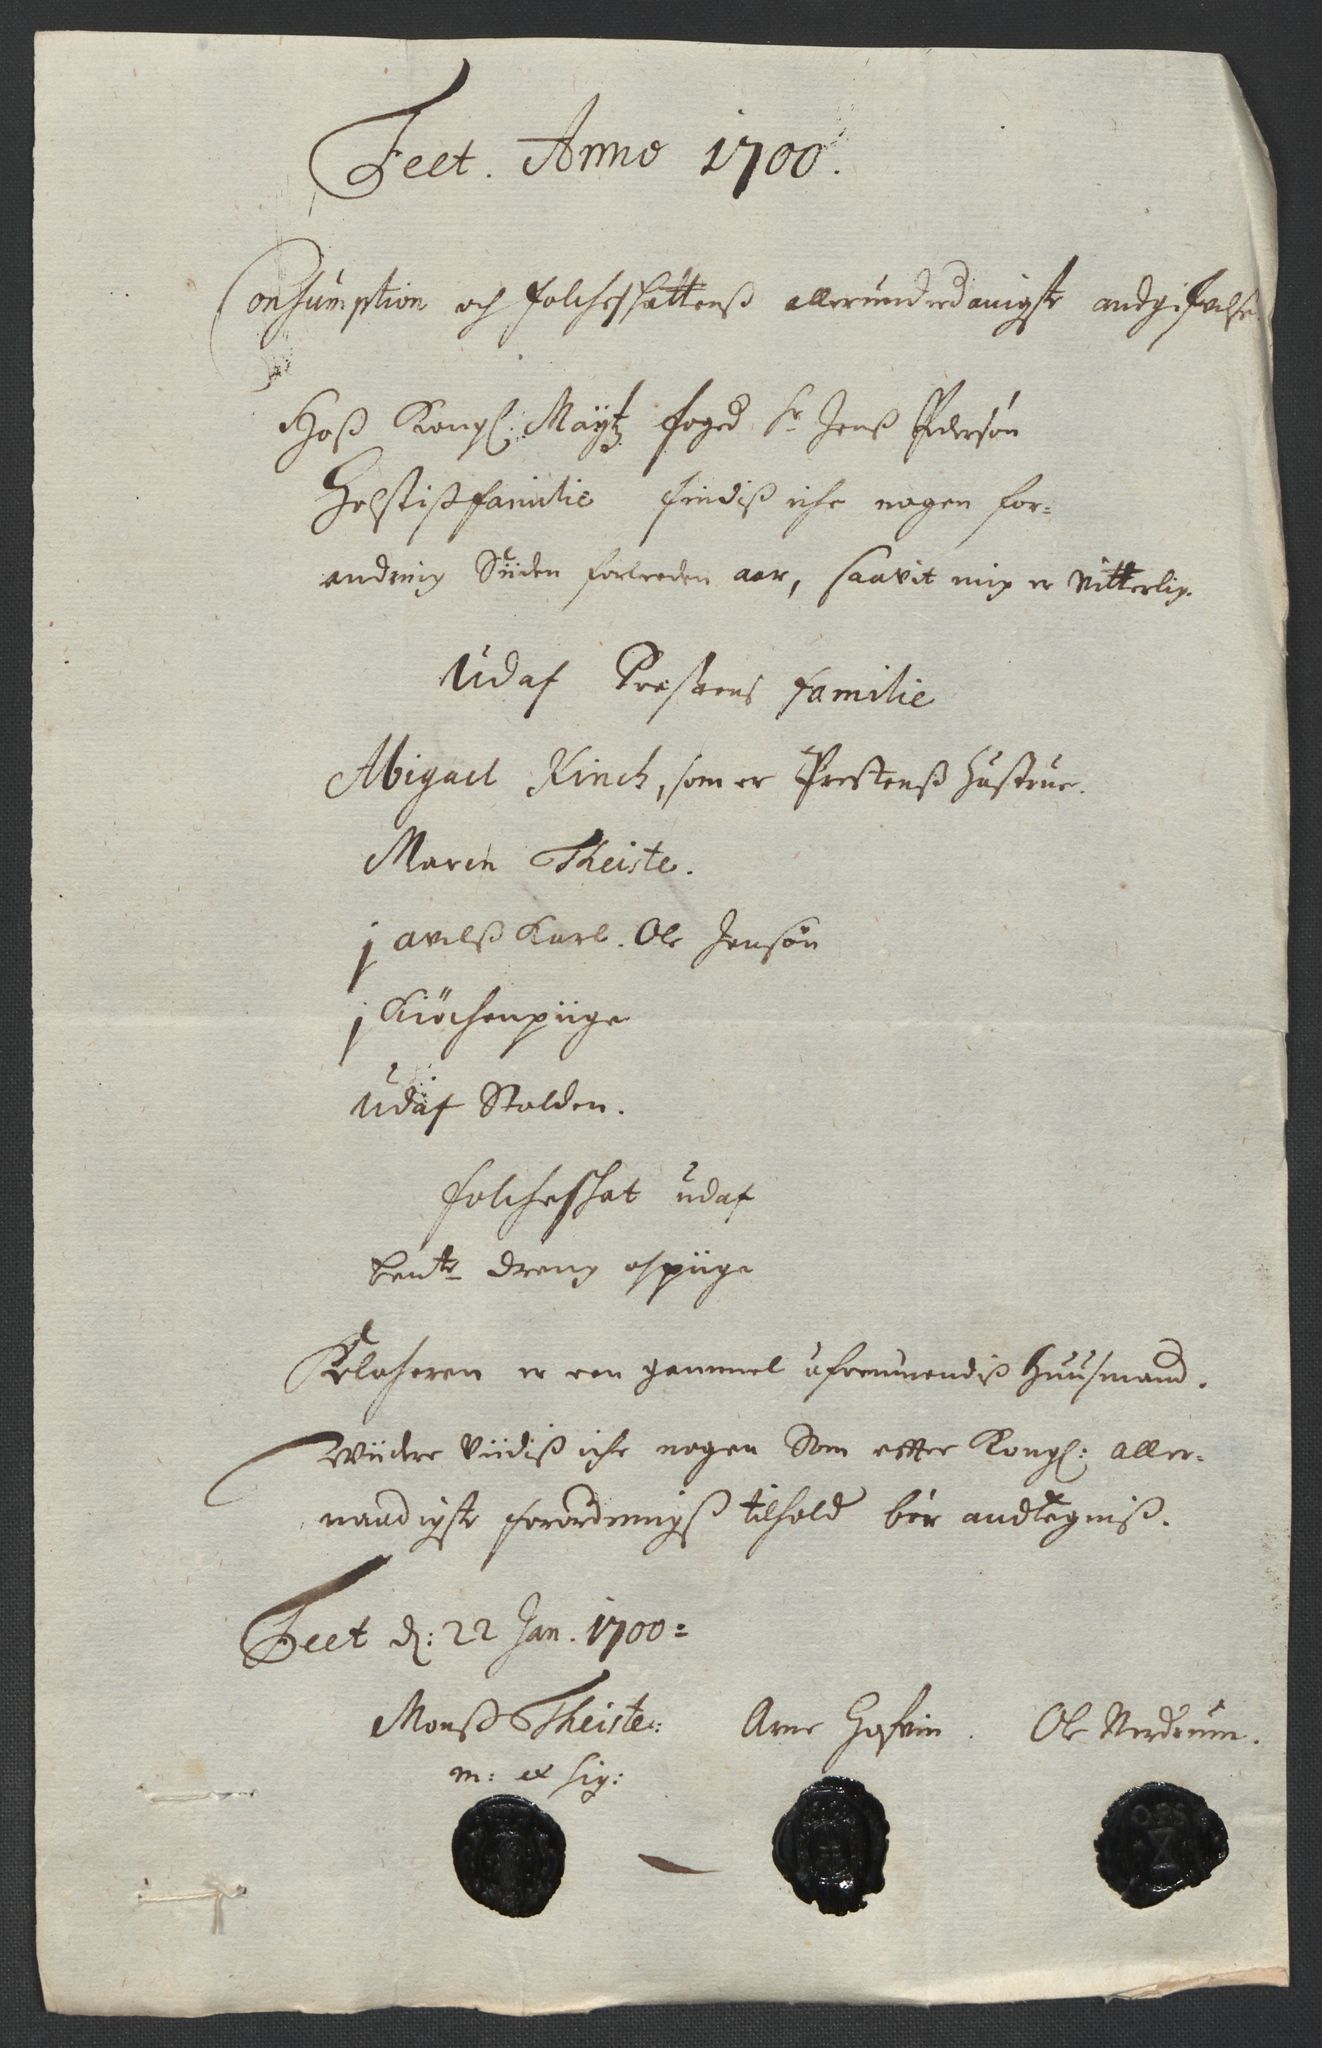 Feet. Anno 1700.
Consumption och folcheskattenß allerunderdanigste andgifvelse.
Hoß Kongl: Maÿtz foged Sr Jenß Pedersøn
familie findiß iche nogen for-
andring Siiden forleeden aar, saavit mig er vitterlig.
Udaf Prestens familie
Abigael Kinck, som er Prestenß Hustrue.
Maren Theiste.
j avelß Karl. Ole Jensøn
j Kiöchenpiige
Udaf Stolden.
folcheskat udaf
dreng och piige
Klocheren er een gammel Huusmand.
Wiidere viidiß iche nogen Som efter Kongl: aller-
naadigste forordningß tilhold bør andtegniß.
Feet d: 22 Jan. 1700=
Monß Theiste: Arne Hofvin. Ole Nerdrum.
m: et sig:
OPS